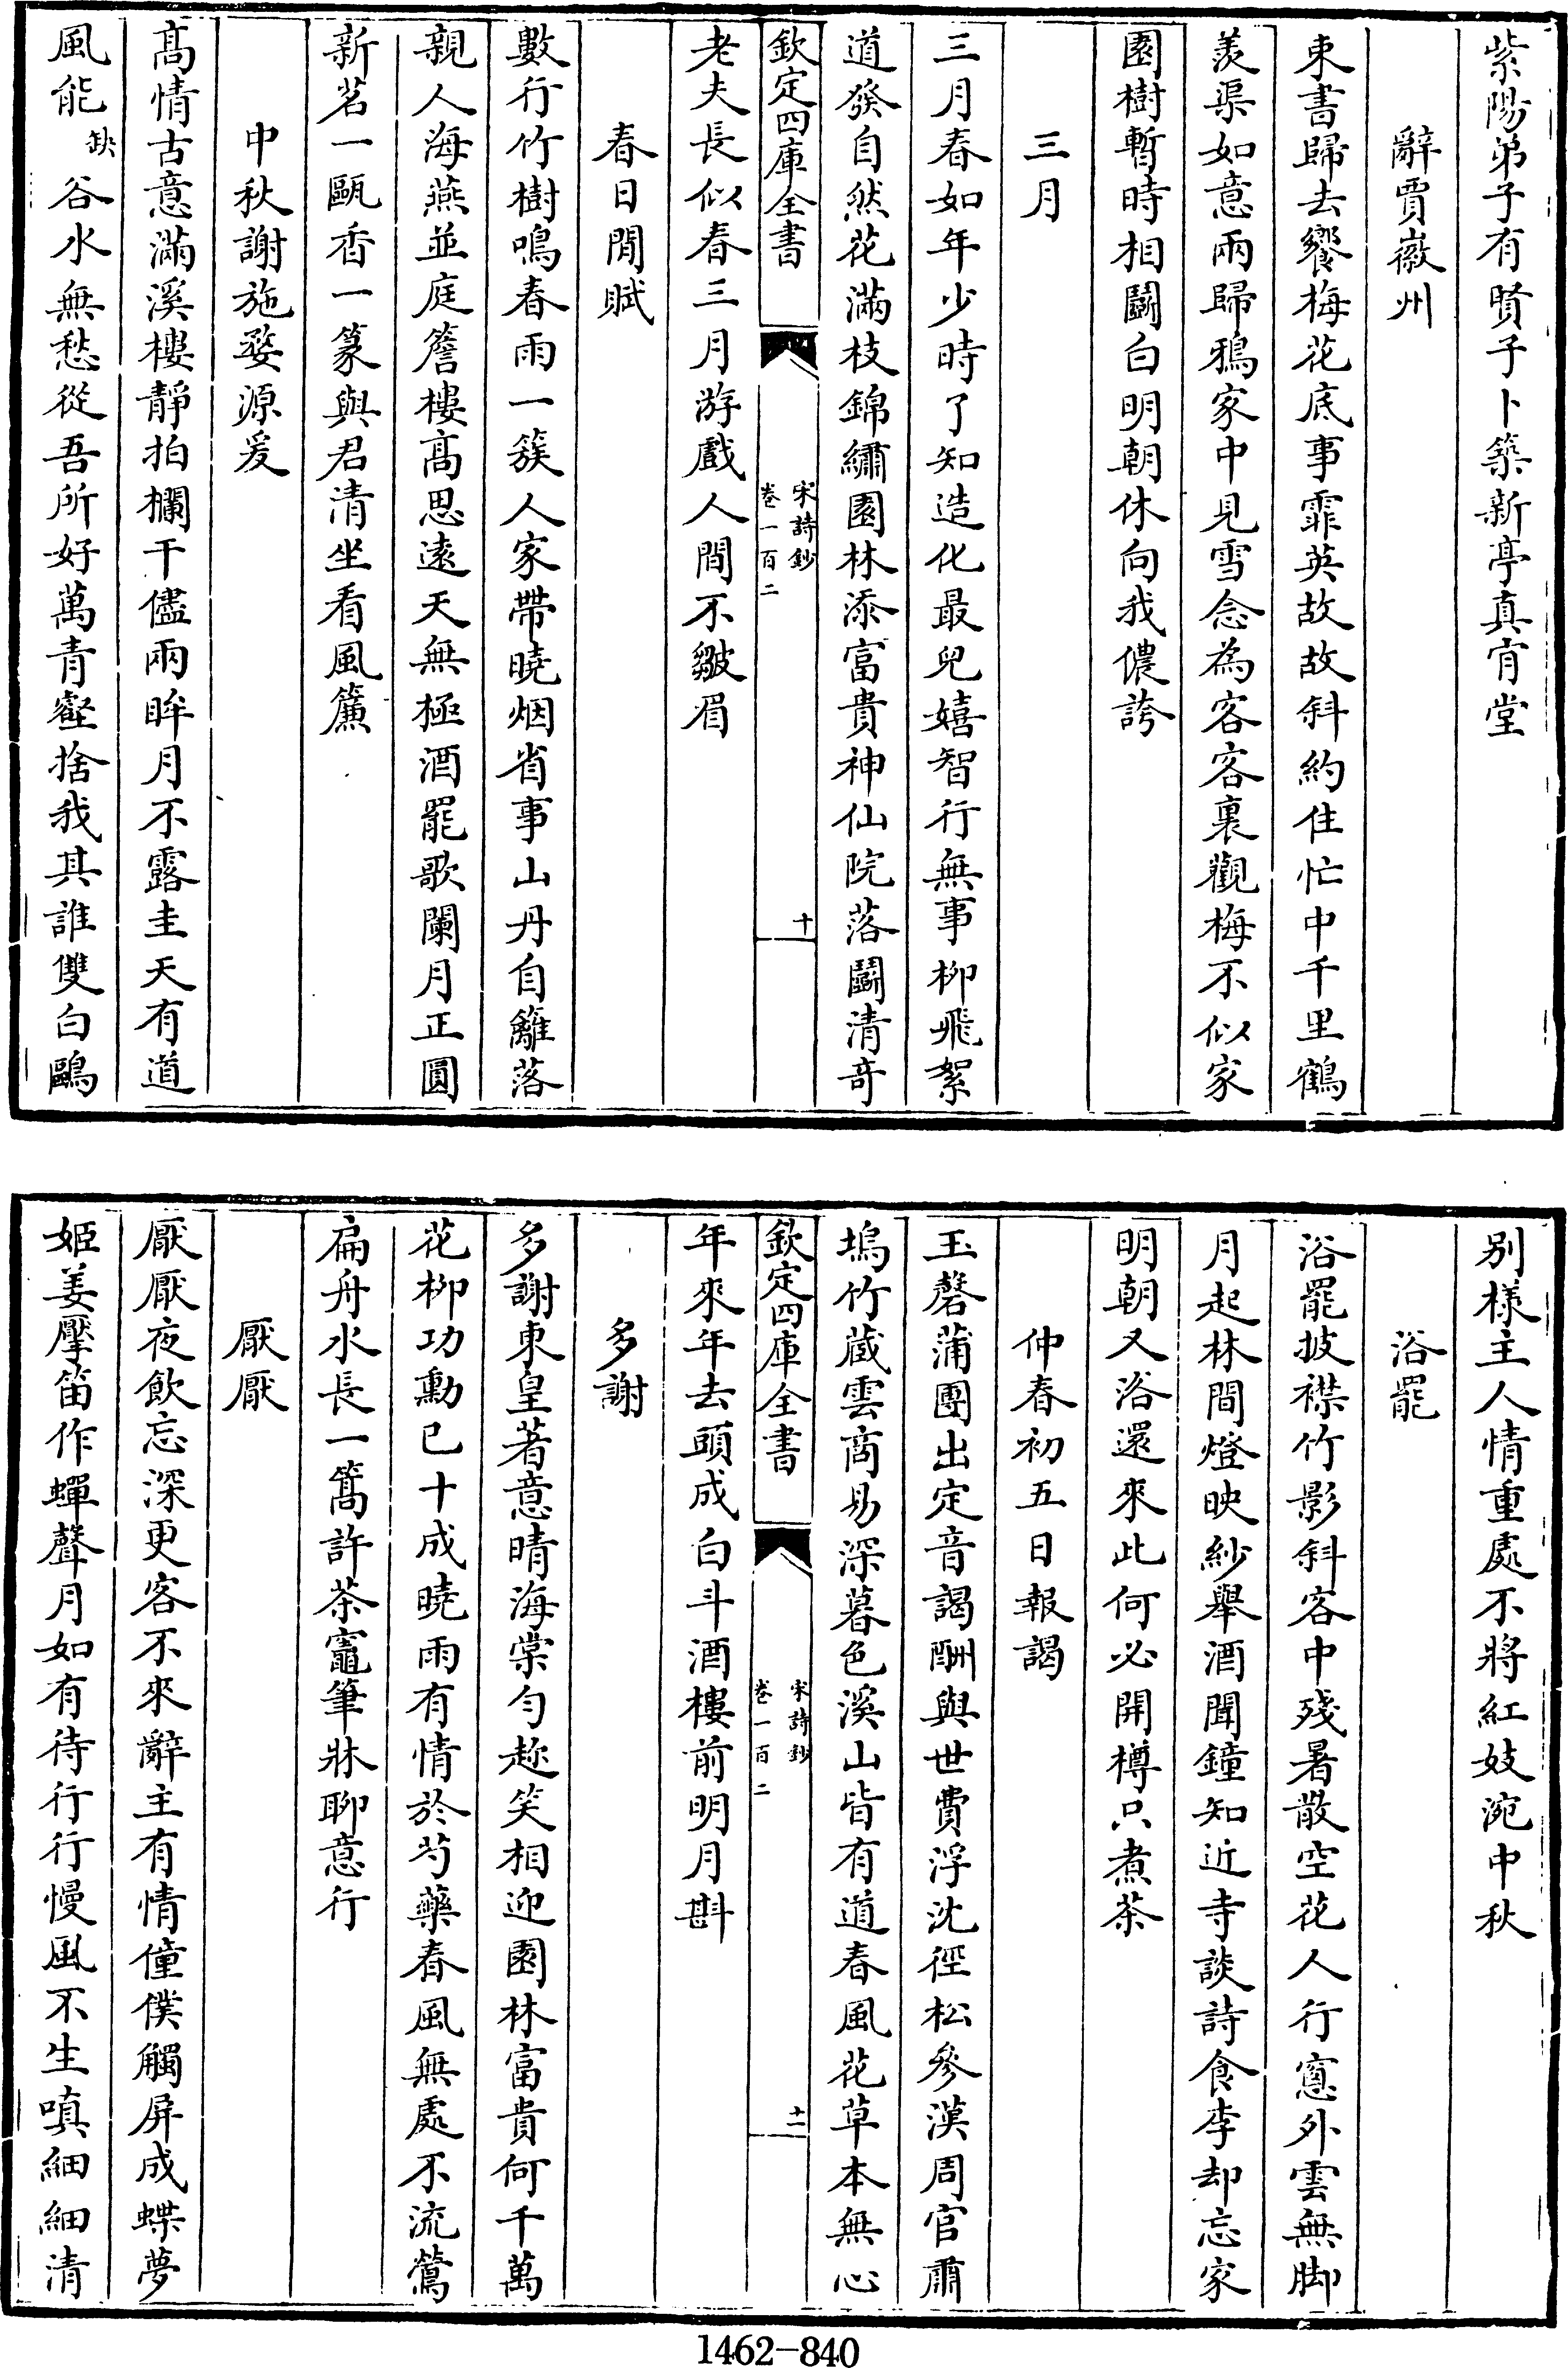 紫陽弟子有賢子卜築新亭真肯堂
辭賈徽州
束書歸去饗梅花底事霏英故故斜約住忙中千里鶴
羨渠如意兩歸鴉家中見雪念為客客裏觀梅不似家
園樹暫時相鬭白明朝休向我儂誇
三月
三月春如年少時了知造化最兒嬉智行無事柳飛絮
道發自然花滿枝錦繡園林添富貴神仙院落鬭清奇
欽定四庫全書
宋詩鈔
卷一百二
十
老夫長似春三月游戲人間不皺眉
春日閒賦
數行竹樹鳴春雨一簇人家帶曉烟省事山丹自籬落
親人海燕並庭簷樓高思遠天無極酒罷歌闌月正圓
新茗一甌香一篆與君清坐看風簾
中秋謝施婺源爰
髙情古意滿溪樓靜拍欄干儘兩眸月不露圭天有道
風能缺谷水無愁從吾所好萬青壑捨我其誰雙白鷗
别樣主人情重處不將紅妓涴中秋
浴罷
浴罷披襟竹影斜客中殘暑散空花人行窻外雲無脚
月起林間燈映紗舉酒聞鐘知近寺談詩食李却忘家
明朝又浴還來此何必開樽只煮茶
仲春初五日報謁
玉磬蒲團出定音謁酬與世費浮沈徑松參漢周官肅
塢竹蔵雲商易深暮色溪山皆有道春風花草本無心
欽定四庫全書
宋詩鈔
卷一百二
十一
年來年去頭成白斗酒樓前明月斟
多謝
多謝東皇著意晴海棠勻趂笑相迎園林富貴何千萬
花柳功勳已十成曉雨有情於芍藥春風無處不流鶯
扁舟水長一篙許茶竈筆牀聊意行
厭厭
厭厭夜飲忘深更客不來辭主有情僮僕觸屏成蝶夢
姬姜擪笛作蟬聲月如有待行行慢風不生嗔細細清
1462-840